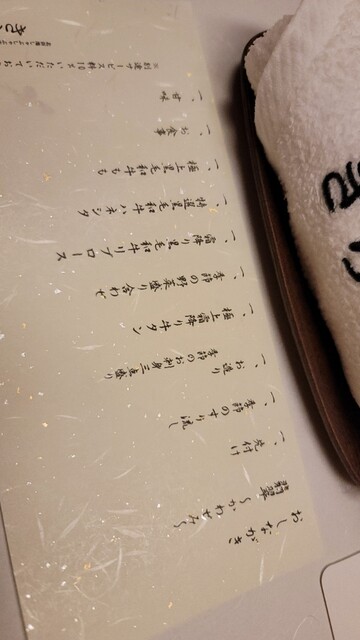 おしながき
翡翠 〜かわせみ〜
一、先付け
一、季節のすり流し
一、お造り
季節のお刺身三点盛り
一、極上霜降り牛タン
一、季節の野菜盛り合わせ
一、霜降り黒毛和牛リブロース
一、特選黒毛和牛ハネシタ
一、極上黒毛和牛もも
一、お食事
一、甘味
※別途サービス料10%いただいてお